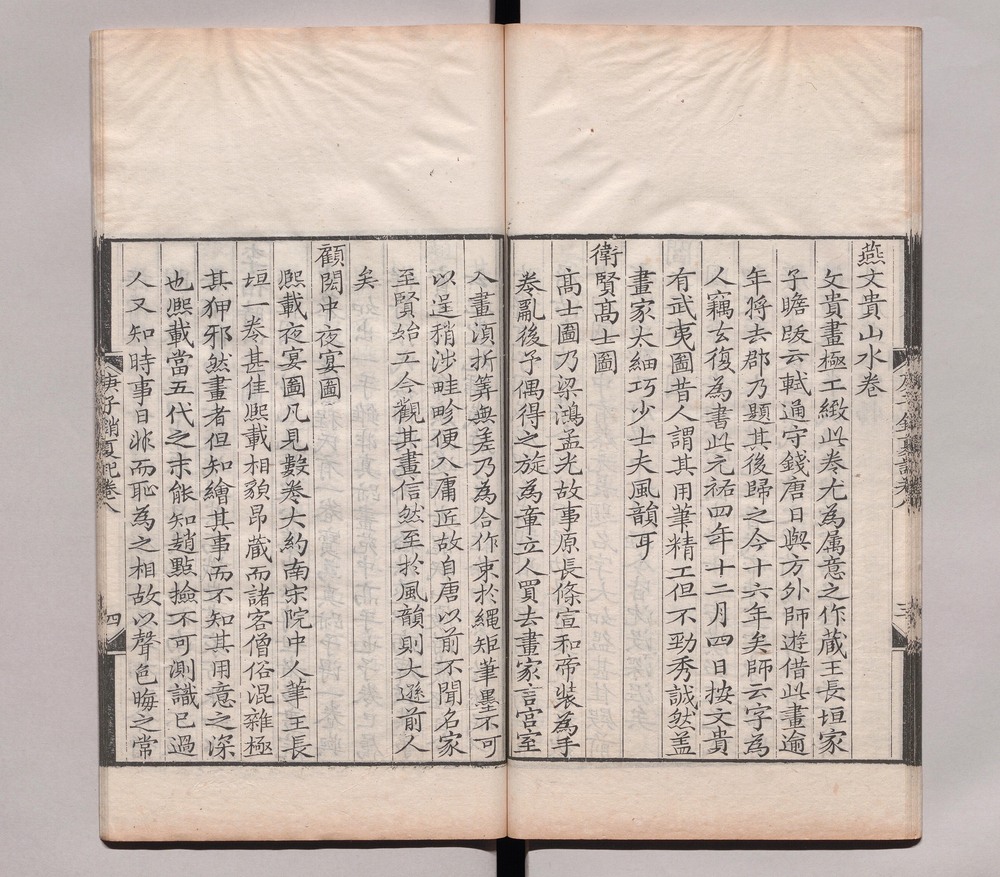 燕文貴山水卷
文貴畫極工緻此卷尤為属意之作蔵王長垣家
子瞻䟦云軾通守錢唐日與方外師遊借此畫逾
年将去郡乃題其後歸之今十六年矣師云字為
人竊去復為書此元祐四年十二月四日按文貴
有武夷圖昔人謂其用筆精工但不勁秀誠然盖
畫家太細巧少士夫風韻耳
衛賢髙士圖
髙士圖乃梁鴻孟光故事原長條宣和帝裝為手
卷亂後予偶得之旋為章立人買去畫家言宫室
入畫湏折筭無差乃為合作束於繩矩筆墨不可
以逞稍涉畦畛便入庸匠故自唐以前不聞名家
至賢始工今觀其畫信然至於風韻則大遜前人
矣
顧閎中夜宴圖
熈載夜宴圖凡見數卷大約南宋院中人筆王長
垣一卷甚佳熈載相貌昂蔵而諸客僧俗混雜極
其狎邪然畫者但知繪其事而不知其用意之深
也熈載當五代之末能知趙點撿不可測識已過
人又知時事日非而恥為之相故以聲色晦之常
庚子銷夏記卷八
四